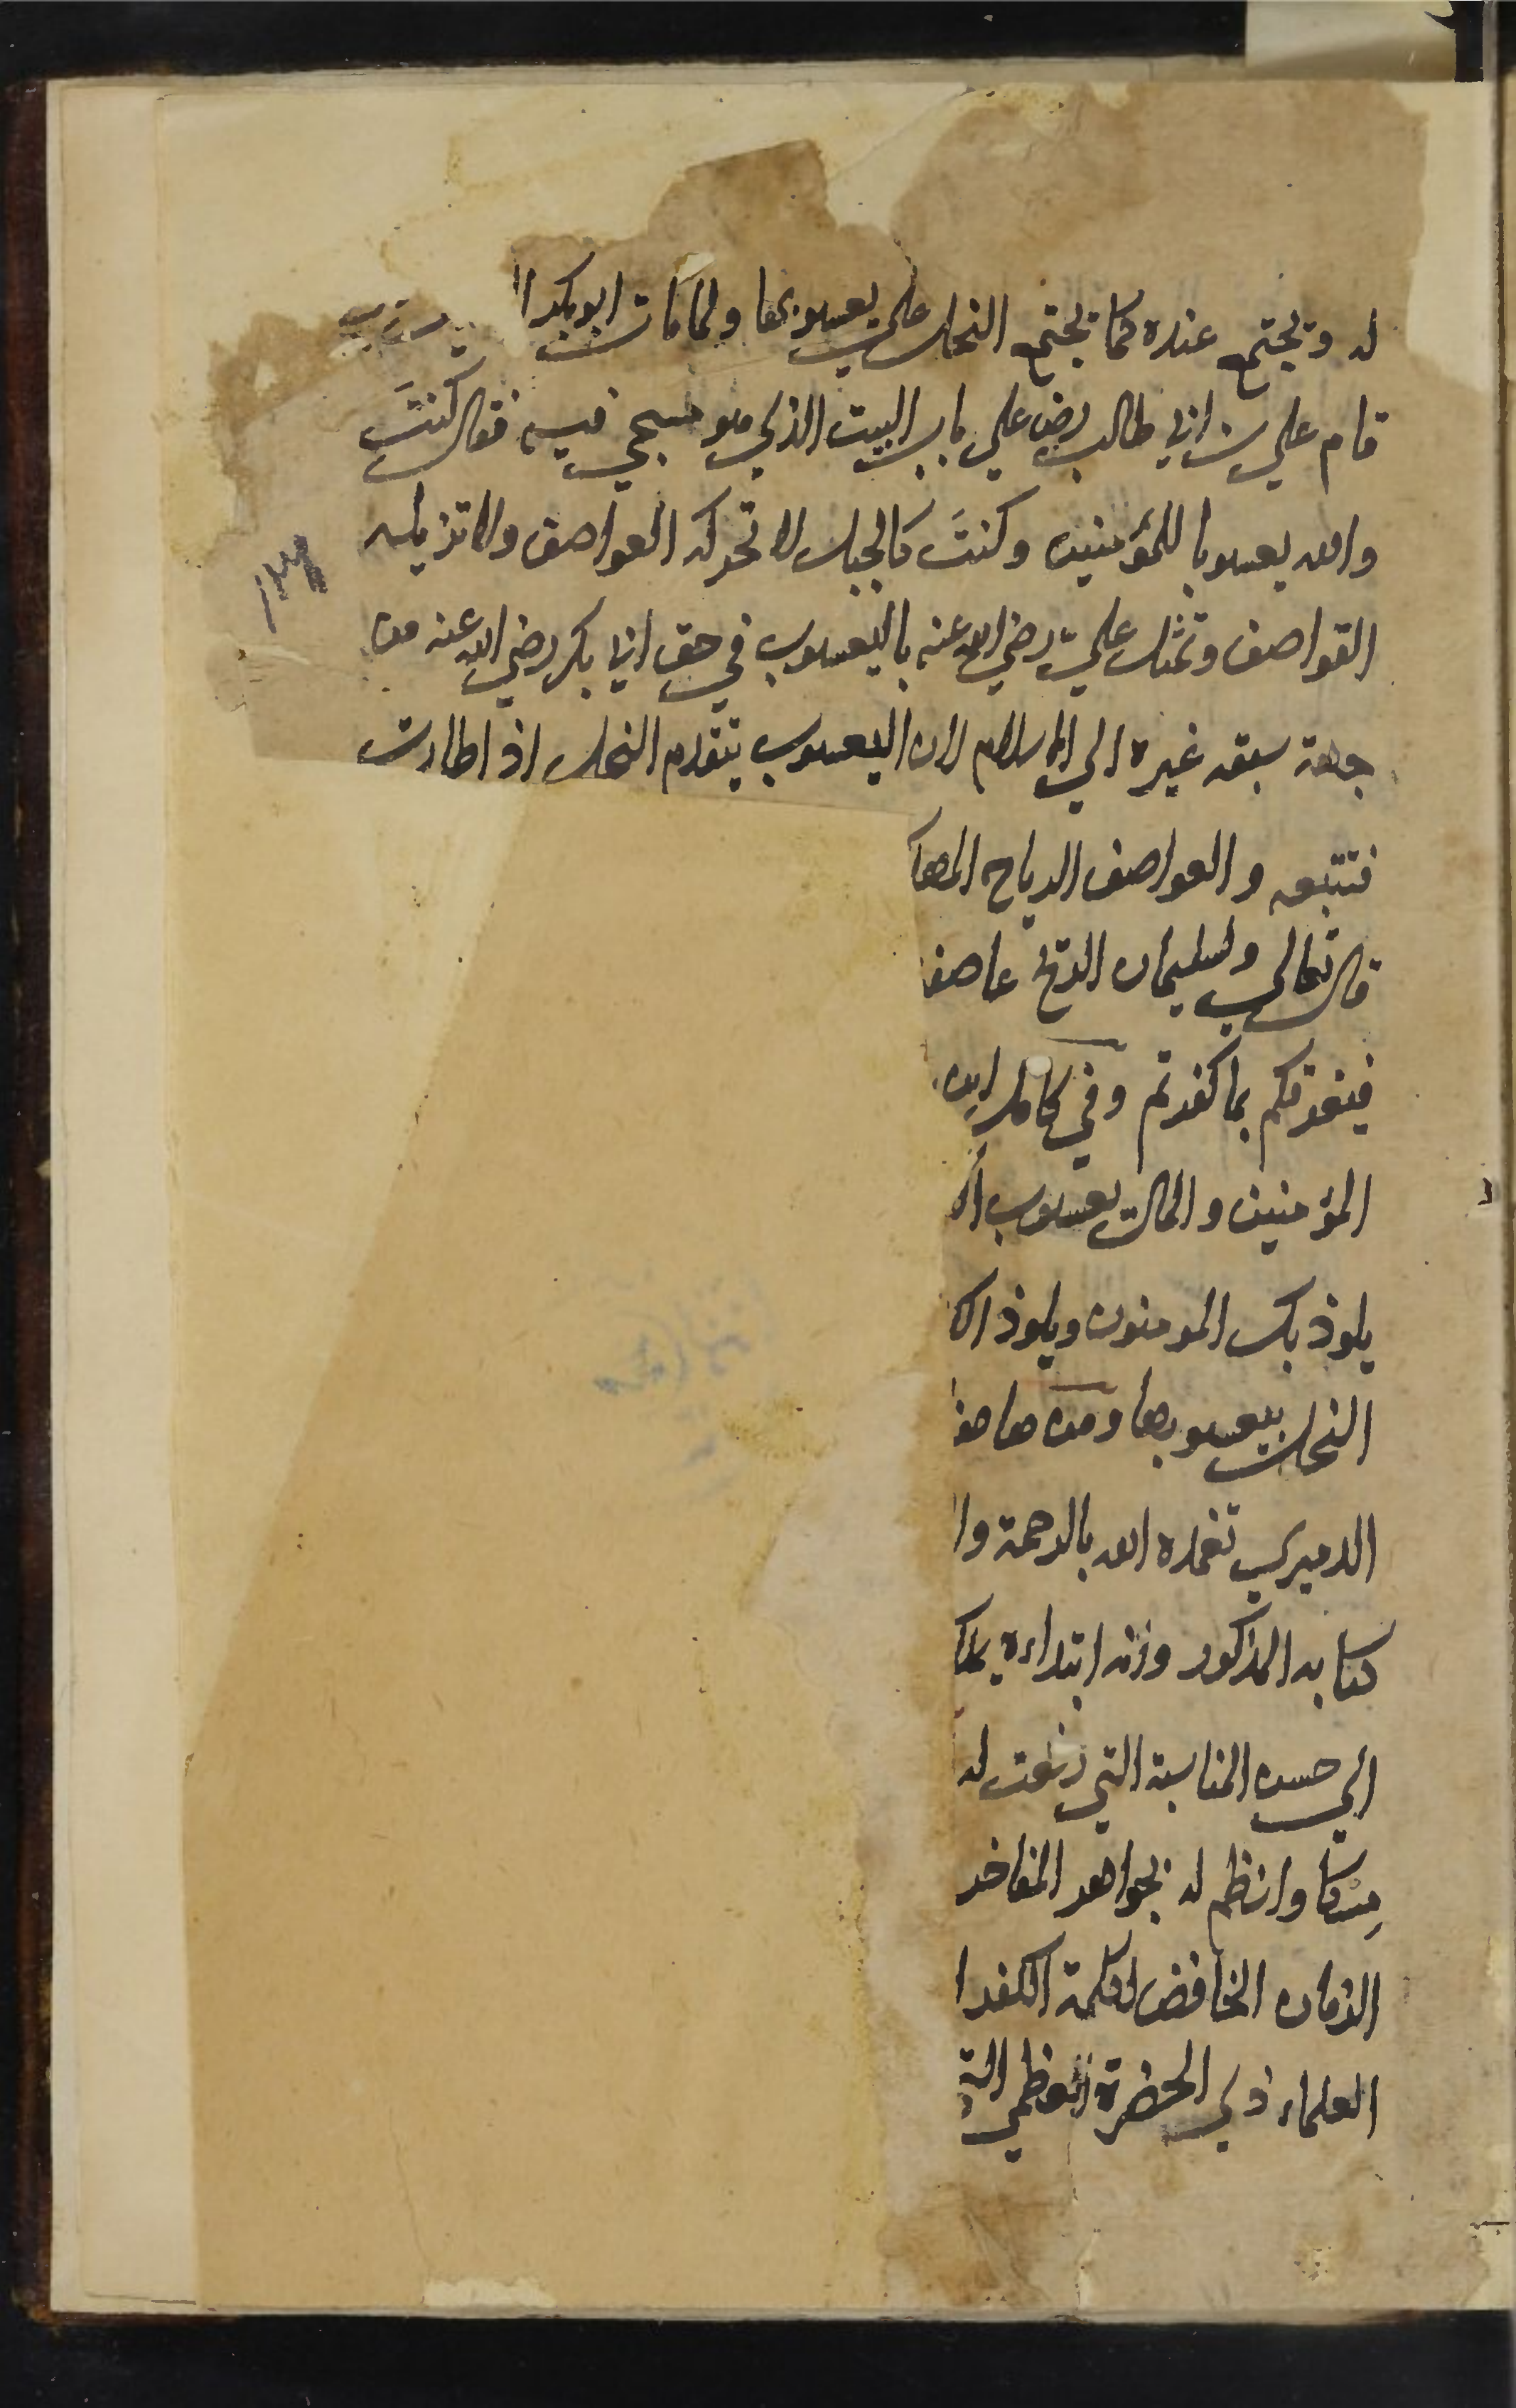 له وتجتمع عنده كما تجتمع النحل على يعسوبها ولما مات ابو بكر ا
قام علي بن ابي طالب رضي على باب البيت الذي هو مسجي فيه فقال كنتَ
والله يعسوبا للمؤمنين وكنتَ كالجبل لا تحركه العواصف ولا تزيله
القواصف وتمثل عليّ رضي الله عنه باليعسوب في حق ابي بكر رضي الله عنه من
جهة سبقه غيره الي الاسلام لان اليعسوب يتقدم النحل اذا طارت
فتتبعه والعواصف الرياح المها
قال تعالي ولسليمان الريح عاصفة
فيغرقكم بما كفرتم وفي كامل ابن
المؤمنين والمال يعسوب ال
يلوذ بك المومنون ويلوذ الك
النحل بيعسوبها ومن هاهنا
الدميري تغمده الله بالرحمة وا
كتابه المذكور وزنه ابتداءه
الي حسن المناسبة التي وقعت له
مسكا وانظم له بجواهر المفاخر
الزمان الخافض لكلمة الكفر ا
العلماء ذي الحضرة العظمي